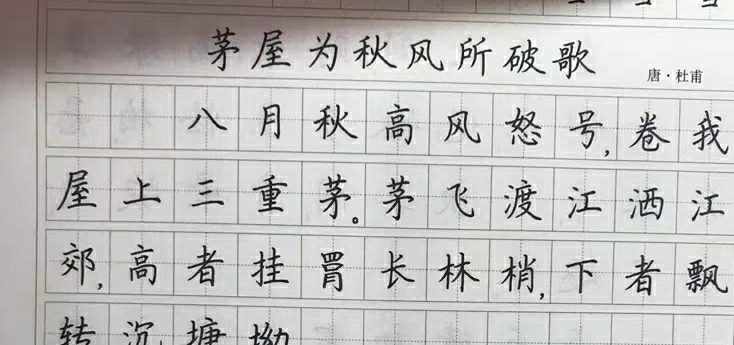 茅屋为秋风所破歌
唐·杜甫
八月秋高风怒号,卷我
屋上三重茅。茅飞渡江洒江
郊,高者挂罥长林梢,下者飘
转沉塘坳